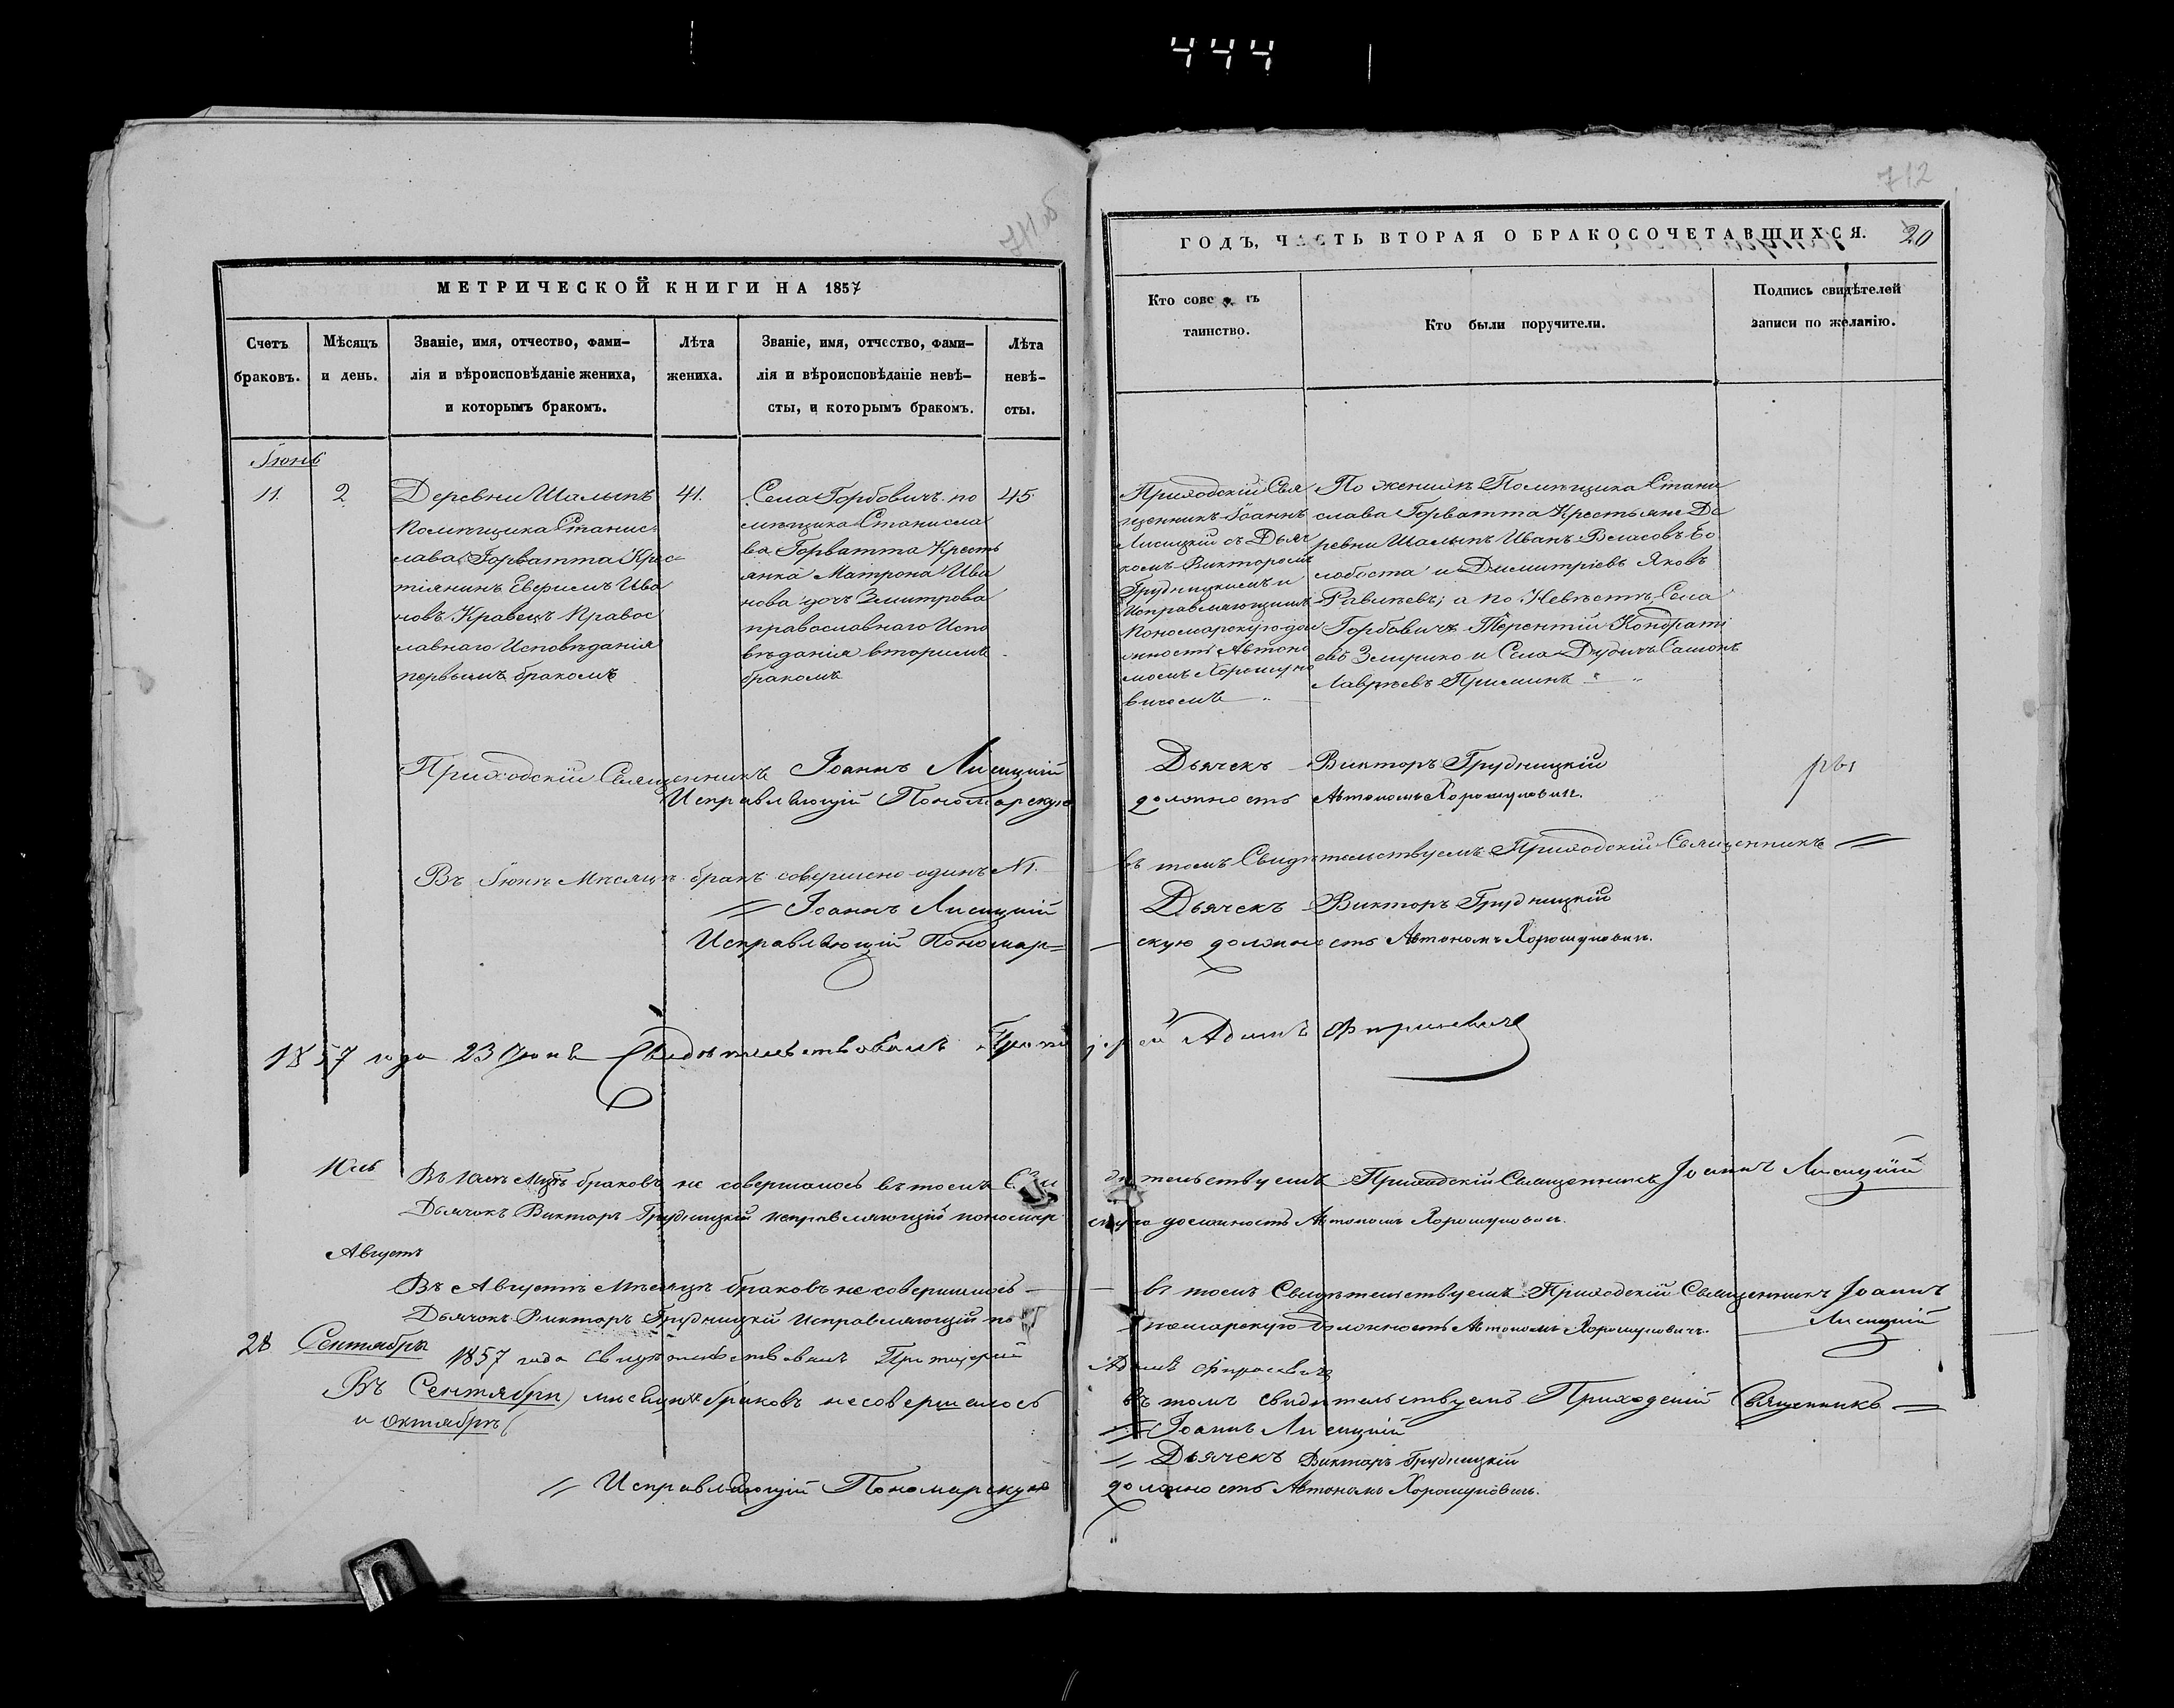 444
711об
712
МЕТРИЧЕСКОЙ КНИГИ НА 1857
Счетъ браковъ.
Мѣсяцъ и день.
Званіе, имя, отчество, фами-
лія и вѣроисповѣданіе жениха,
и которымъ бракомъ.
Лѣта
жениха.
Званіе, имя, отчество, фами-
лія и вѣроисповѣданіе невѣ-
сты, и которымъ бракомъ.
Лѣта
невѣ-
сты.
Іюнь
11.
2
Деревни Шалыпъ
помѣщика Станис-
лава Горватта Крес-
тіянинъ Ивa
новъ Кравецъ Правос
лавнаго Исповѣданія
первымъ бракомъ
41.
Села Горбовичъ по
мѣщика Станисла
ва Горватта Кресть
янка Матрона Ива
нова дочъ Змитрова
православнаго Испо
вѣданія вторымъ
бракомъ
45.
Приходскій Священникъ Іоаннъ Лисицкій
Исправляющій Пономарскую
Въ Іюнѣ Мѣсяцѣ бракъ совершено одинъ №1.
Іоаннъ Лисицкій
Исправляющій Пономар=
1857 года 23 Іюня Свидѣтельствовалъ Прото
Юль
Въ Юлѣ Мцѣ браковъ не совершалось въ томъ Сви
Дьячокъ Викторъ Грудницкій исправляющій пономар
Августъ
Въ Августѣ Мѣсяцѣ браковъ не совершалось
Дьячокъ Викторъ Грудницкій Исправляющій по
28 Сентября 1857 года свидѣтельствовалъ Протоіерей
Въ Сентябрѣ мѣсяцахъ браковъ несовершалось
и октябрѣ
Исправляющій Пономарскую
ГОДЪ, ЧАСТЬ ВТОРАЯ О БРАКОСОЧЕТАВШИХСЯ.
20
Кто сове гъ
таинство.
Кто были поручители.
Подпись свидѣтелей
записи по желанію.
Приходскій Свя
щенникъ Іоаннъ
Лисицкій съ Дьяч
комъ Викторомъ
Грудницкимъ и
Исправляющимъ
Пономарскую дол
жность Автоно
момъ Хорошуно
вичемъ
По женихѣ Помѣщика Стани
слава Горватта Крестьяне Де
ревни Шалыпъ Иванъ Власовъ
и Димитріевъ Яковъ
а по Невѣстѣ Села
Горбовичъ Терентій Кондрати
евъ и Села Дудичъ
Лаврѣевъ
Дьячекъ Викторъ Грудницкій
должность Автономъ Хорошуновичъ.
въ томъ Свидѣтельствуемъ Приходскій Священникъ
Дьячекъ Викторъ Грудницкій
скую должность Автономъ Хорошуновичъ.
іерей Адамъ Фирисевичъ
дѣтельствуемъ Приходскій Священникъ Іоаннъ Лисицкій
скую должность Автономъ Хорошуновичъ.
въ томъ Свидѣтельствуемъ Приходскій Священникъ Іоаннъ
Лисицкій
номарскую должность Автономъ Хорошуновичъ.
Адамъ
въ томъ свидѣтельствуемъ Приходскій Священникъ
Іоаннъ Лисицкій
Дьячекъ Викторъ Грудницкій
должность Автономъ Хорошуновичъ.